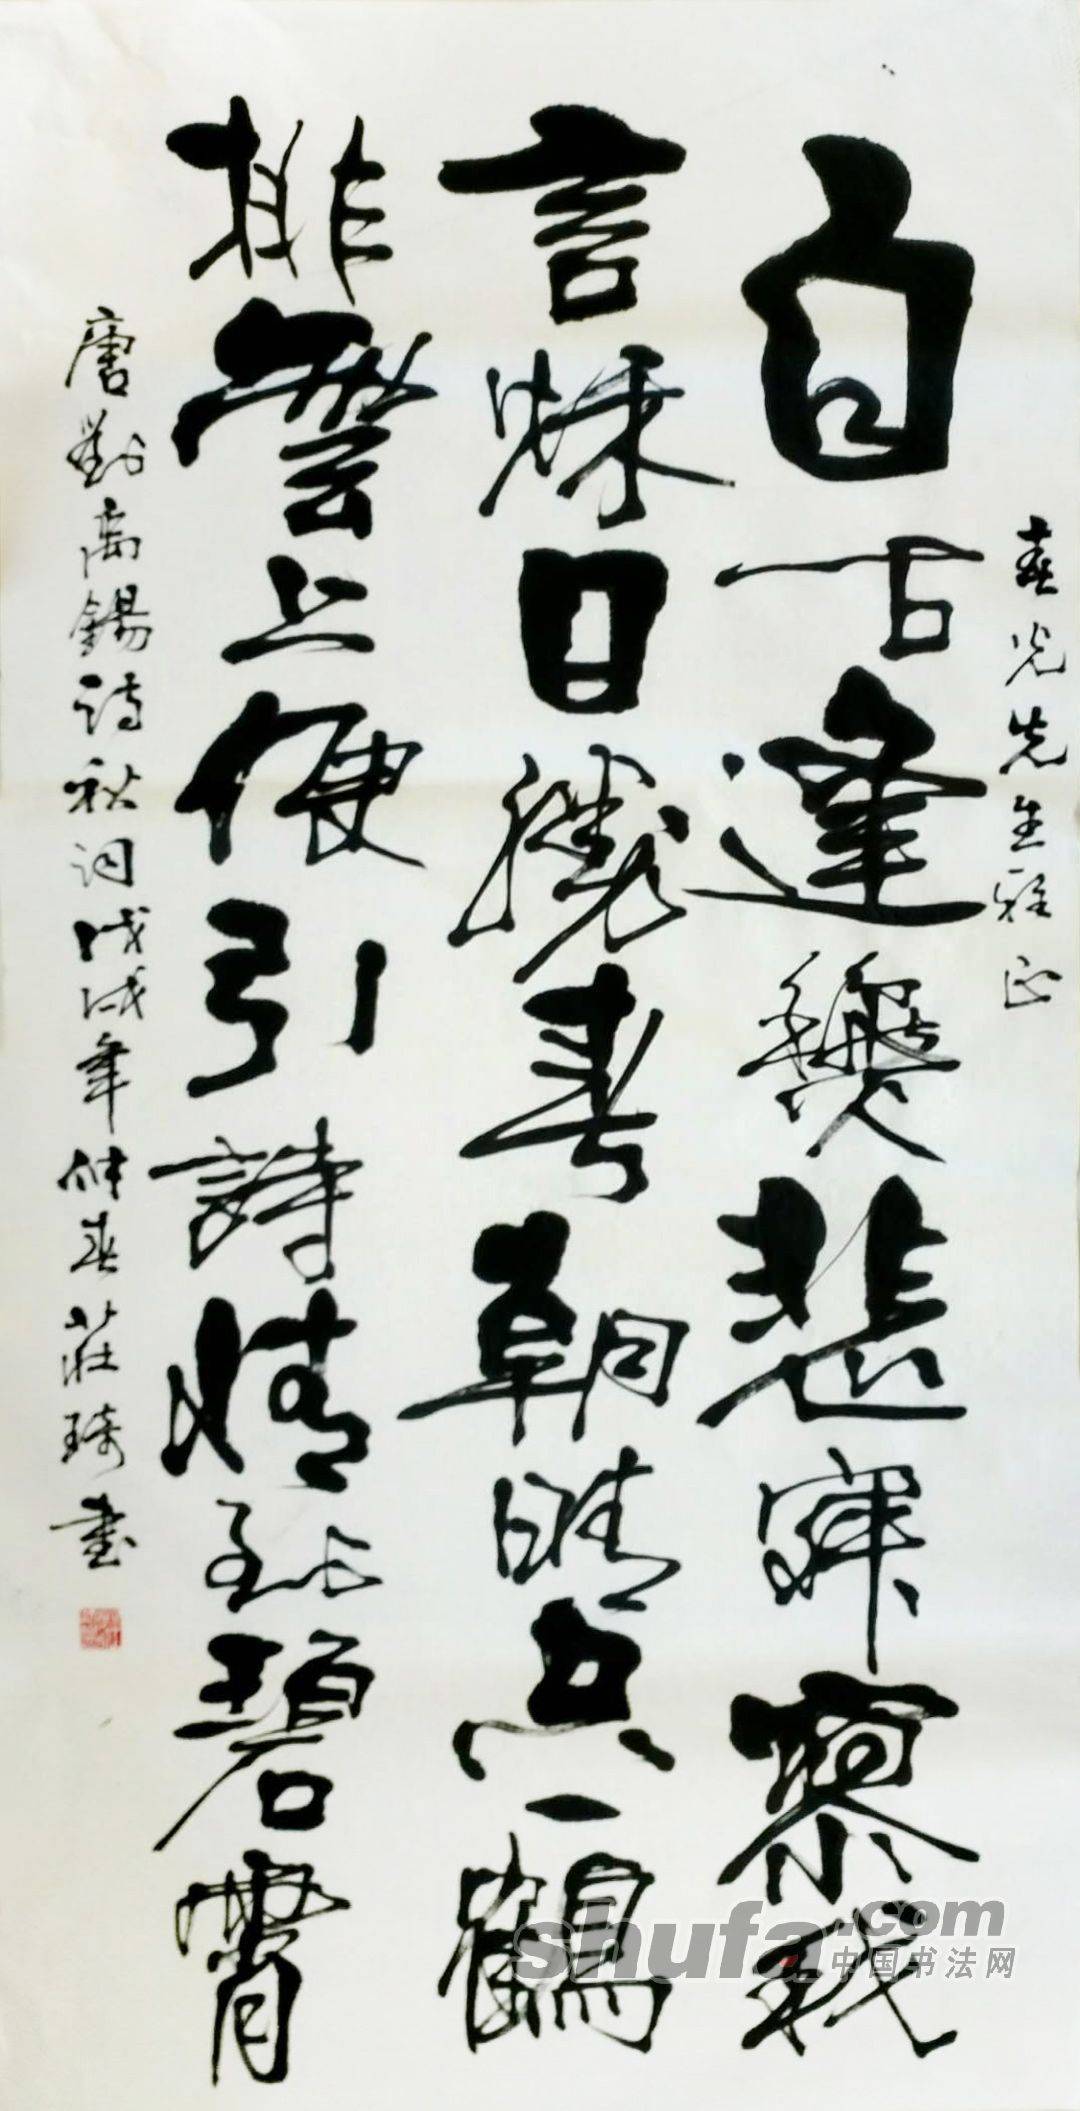 春光先生雅正
自古逢龝悲寂寥我
言秌日勝春朝晴空一鶴
排雲上便引詩情到碧霄
唐劉禹錫詩秋词戊戌年仲春莊琦書
shufa.com
中国书法网